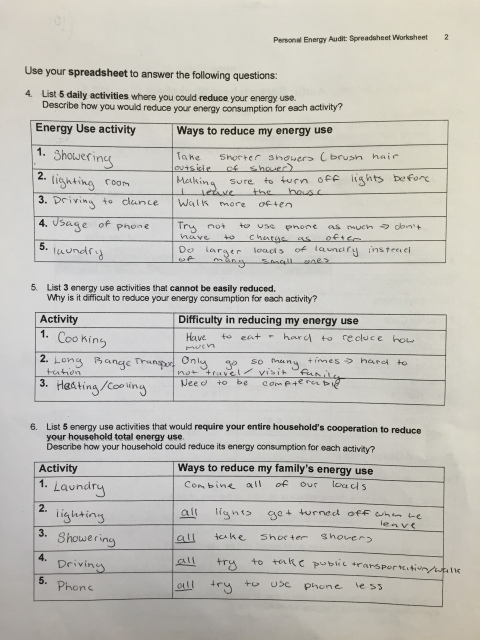 Personal Energy Audit: Spreadsheet Worksheet 2
Use your spreadsheet to answer the following questions:
4. List 5 daily activities where you could reduce your energy use.
Describe how you would reduce your energy consumption for each activity?
Energy Use activity Ways to reduce my energy use
1. Showering Take shorter showers (brush hair
outside of shower)
2. lighting room Making sure to turn off lights before
I leave the house
3. Driving to dance Walk more often
4. Usage of phone Try not to use phone as much → don't
have to charge as often
5. laundry Do larger loads of laundry instead
of many small ones
5. List 3 energy use activities that cannot be easily reduced.
Why is it difficult to reduce your energy consumption for each activity?
Activity Difficulty in reducing my energy use
1. Cooking Have to eat - hard to reduce how
much
2. Long Range Transpor Only go so many times → hard to
tation not travel / visit family
3. Heating/Cooling Need to be compterable
6. List 5 energy use activities that would require your entire household's cooperation to reduce
your household total energy use.
Describe how your household could reduce its energy consumption for each activity?
Activity Ways to reduce my family's energy use
1. Laundry Combine all of our loads
2. lighting all lights get turned off when we
leave
3. Showering all take shorter showers
4. Driving all try to take public transportation/walk
5. Phone all try to use phone less